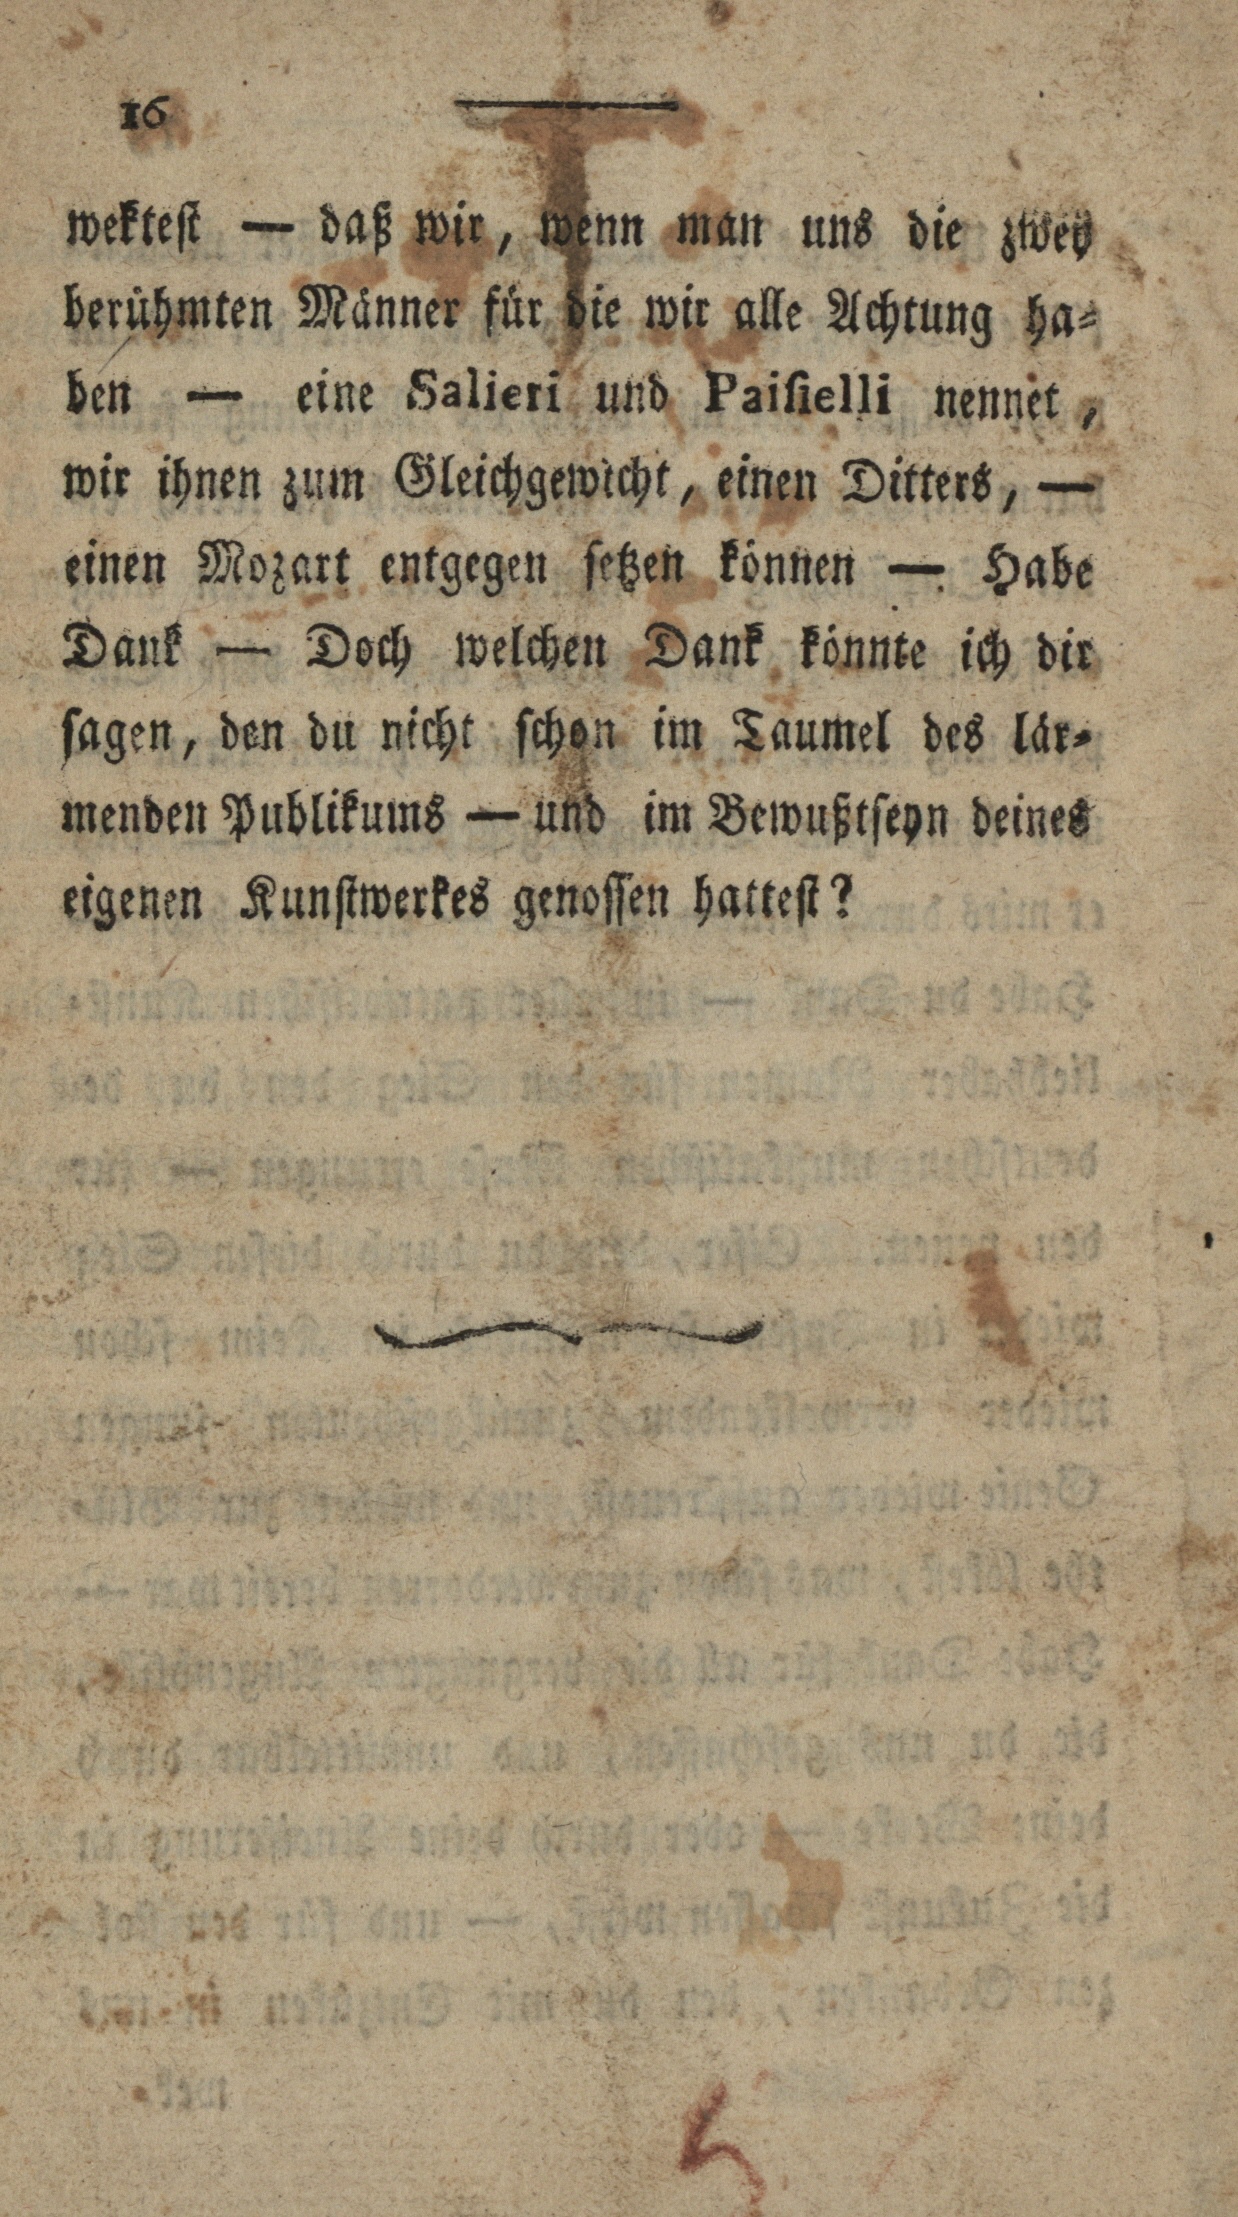 16
wektest — daß wir, wenn man uns die zwey
berühmten Männer für die wir alle Achtung ha-
ben — eine Salieri und Paisielli nennet,
wir ihnen zum Gleichgewicht, einen Ditters, —
einen Mozart entgegen setzen können — Habe
Dank — Doch welchen Dank könnte ich dir
sagen, den du nicht schon im Taumel des lär-
menden Publikums — und im Bewußtseyn deines
eigenen Kunstwerkes genossen hattest?